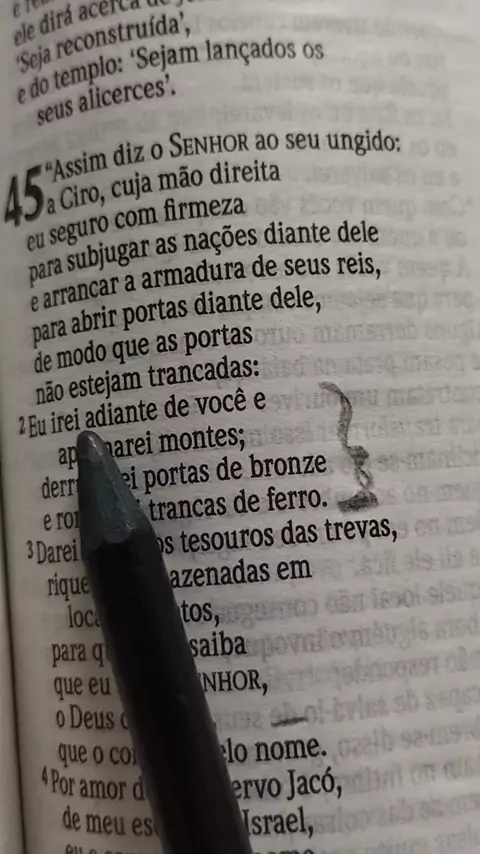 ele dirá acerca de
‘Seja reconstruída’,
e do templo: ‘Sejam lançados os
seus alicerces’.
45 “Assim diz o SENHOR ao seu ungido:
a Ciro, cuja mão direita
eu seguro com firmeza
para subjugar as nações diante dele
e arrancar a armadura de seus reis,
para abrir portas diante dele,
de modo que as portas
não estejam trancadas:
2 Eu irei adiante de você e
montes;
portas de bronze
e trancas de ferro.
3 Darei tesouros das trevas,
em
para
que eu SENHOR,
o Deus
que o pelo nome.
4 Por amor Jacó,
de meu Israel,